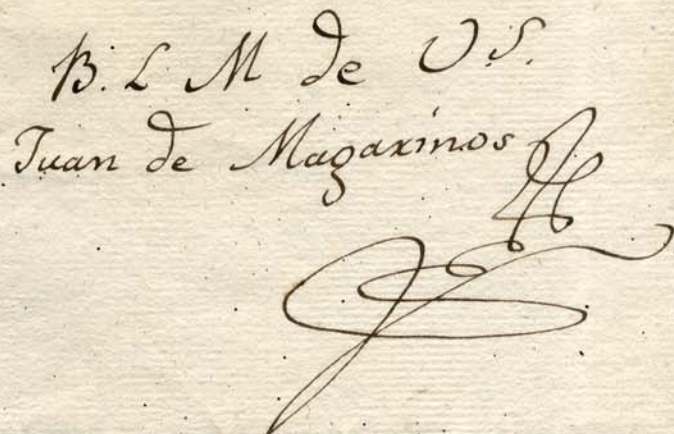 B. L M de V.S.
Juan de Magarinos